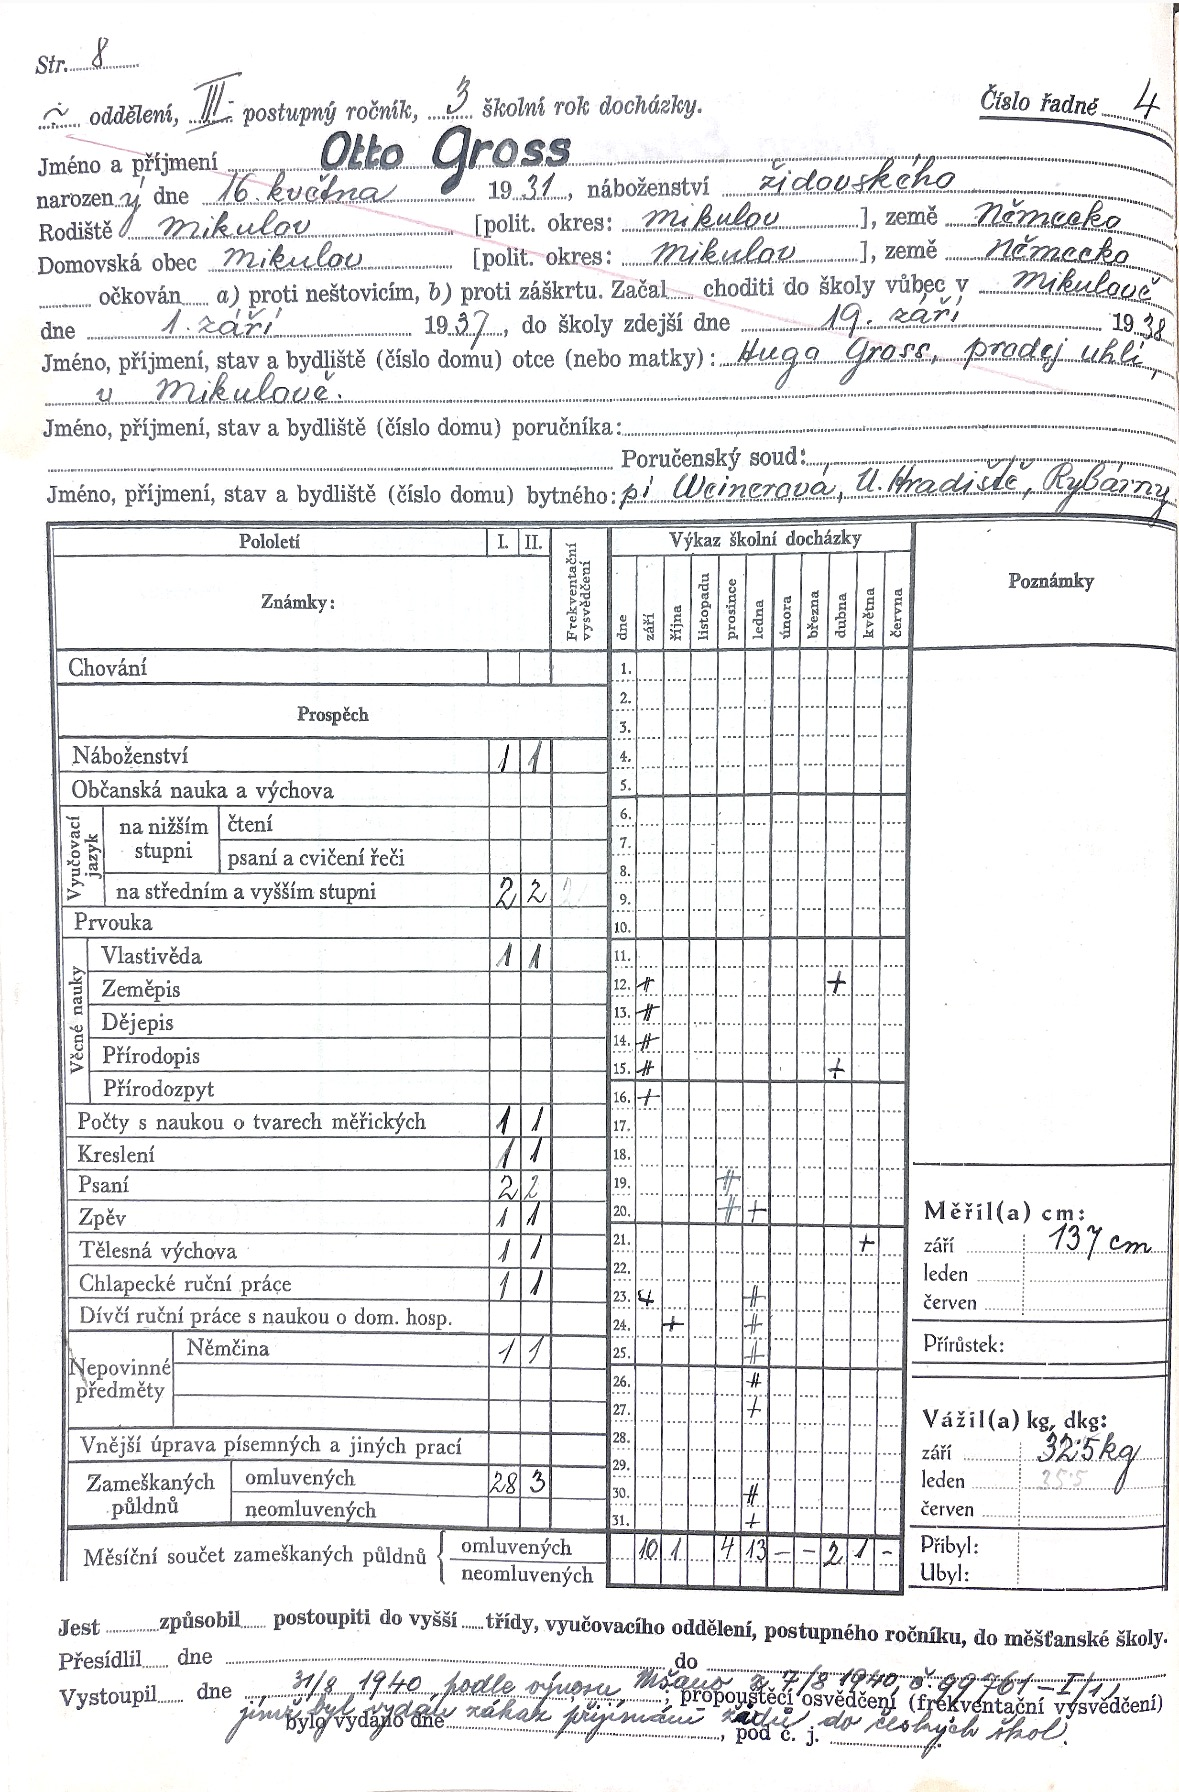 Str. 8
oddělení, III. postupný ročník, 3 školní rok docházky.
Číslo řadné 4
Jméno a příjmení Otto Gross
narozený dne 16. května 1931, náboženství židovského
Rodiště Mikulov [polit. okres: Mikulov], země Německo
Domovská obec Mikulov [polit. okres: Mikulov], země Německo
očkován a) proti neštovicím, b) proti záškrtu. Začal choditi do školy vůbec v Mikulově
dne 1. září 1937, do školy zdejší dne 19. září 1938
Jméno, příjmení, stav a bydliště (číslo domu) otce (nebo matky): Hugo Gross, prodej uhlí,
v Mikulově.
Jméno, příjmení, stav a bydliště (číslo domu) poručníka:
Poručenský soud:
Jméno, příjmení, stav a bydliště (číslo domu) bytného: pí Weinerová, U. Hradiště, Rybárny
Pololetí I. II. Frekventační vysvědčení
Známky:
Výkaz školní docházky
dne září října listopadu prosince ledna února března dubna května června
Poznámky
Chování
Prospěch
Náboženství 1 1
Občanská nauka a výchova
Vyučovací jazyk
na nižším stupni
čtení
psaní a cvičení řeči
na středním a vyšším stupni 2 2 2
Prvouka
Věcné nauky
Vlastivěda 1 1
Zeměpis
Dějepis
Přírodopis
Přírodozpyt
Počty s naukou o tvarech měřických 1 1
Kreslení 1 1
Psaní 2 2
Zpěv 1 1
Tělesná výchova 1 1
Chlapecké ruční práce 1 1
Dívčí ruční práce s naukou o dom. hosp.
Nepovinné předměty
Němčina 1 1
Vnější úprava písemných a jiných prací
Zameškaných půldnů
omluvených 28 3
neomluvených
1.
2.
3.
4.
5.
6.
7.
8.
9.
10.
11.
12. # +
13. #
14. #
15. # +
16. +
17.
18.
19. #
20. # +
21. +
22.
23. 4 #
24. + #
25. #
26. #
27. +
28.
29.
30. #
31. +
Měsíční součet zameškaných půldnů
omluvených 10 1 4 13 – – 2 1 -
neomluvených
Měřil(a) cm:
září 137 cm
leden
červen
Přírůstek:
Vážil(a) kg, dkg:
září 32·5kg
leden 35·5
červen
Přibyl:
Ubyl:
Jest způsobil postoupiti do vyšší třídy, vyučovacího oddělení, postupného ročníku, do měšťanské školy.
Přesídlil dne do
Vystoupil dne 31/8 1940 podle výnosu Mšano z 7/8 1940, č. 99761-I/1,
propouštěcí osvědčení (frekventační vysvědčení)
jímž byl vydán zákaz přijímání židů do českých škol.
bylo vydáno dne, pod č. j.